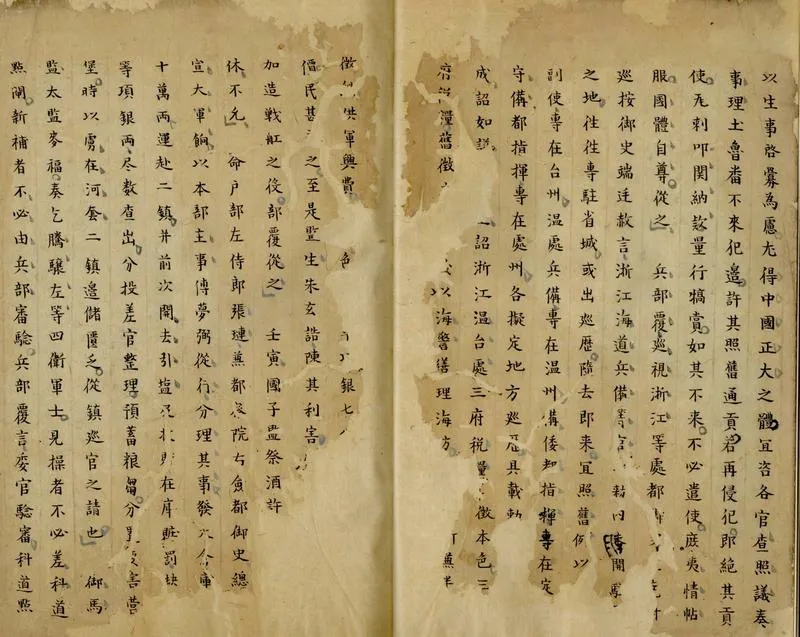 以生事啓釁為慮尤得中國正大之體宜咨各官查照議奏
事理土魯番不來犯邊許其照舊通貢若再侵犯即絕其貢
使无刺叩関納款量行犒賞如其不来不必遣使庶夷情帖
服國體自尊從之 兵部覆巡視浙江等處都
巡按御史端廷赦言浙江海道兵備等官 勑内開專
之地徃徃專駐省城或出巡歴隨去即来宜照舊例以
副使專在台州温處兵備專在温州備倭都指揮專在定
守備都指揮專在處州各擬定地方巡 具載勅
成詔如議 詔浙江温台處三府税量徴本色三
府 舊徴 以海警繕理海防
徴 供軍興費 色 銀七
僵民甚 之至是監生朱玄誥陳其利害
加造戦舡之後部覆從之 壬寅國子監祭酒許
休不允 命户部左侍郎張璉兼都察院右僉都御史總
宣大軍餉以本部主事傅夢弼從行分理其事發太倉庫
十萬兩運赴二鎮并前次開去引塩 在庫賍罰缺
等項銀兩尽数查出分投差官整理預蓄粮芻分 要害營
堡時以虜在河套二鎮邉儲匱乏從鎮巡官之請也 御馬
監太監麥福奏乞騰驤左等四衛軍士見操者不必差科道
點閘新補者不必由兵部審驗兵部覆言委官驗審科道點